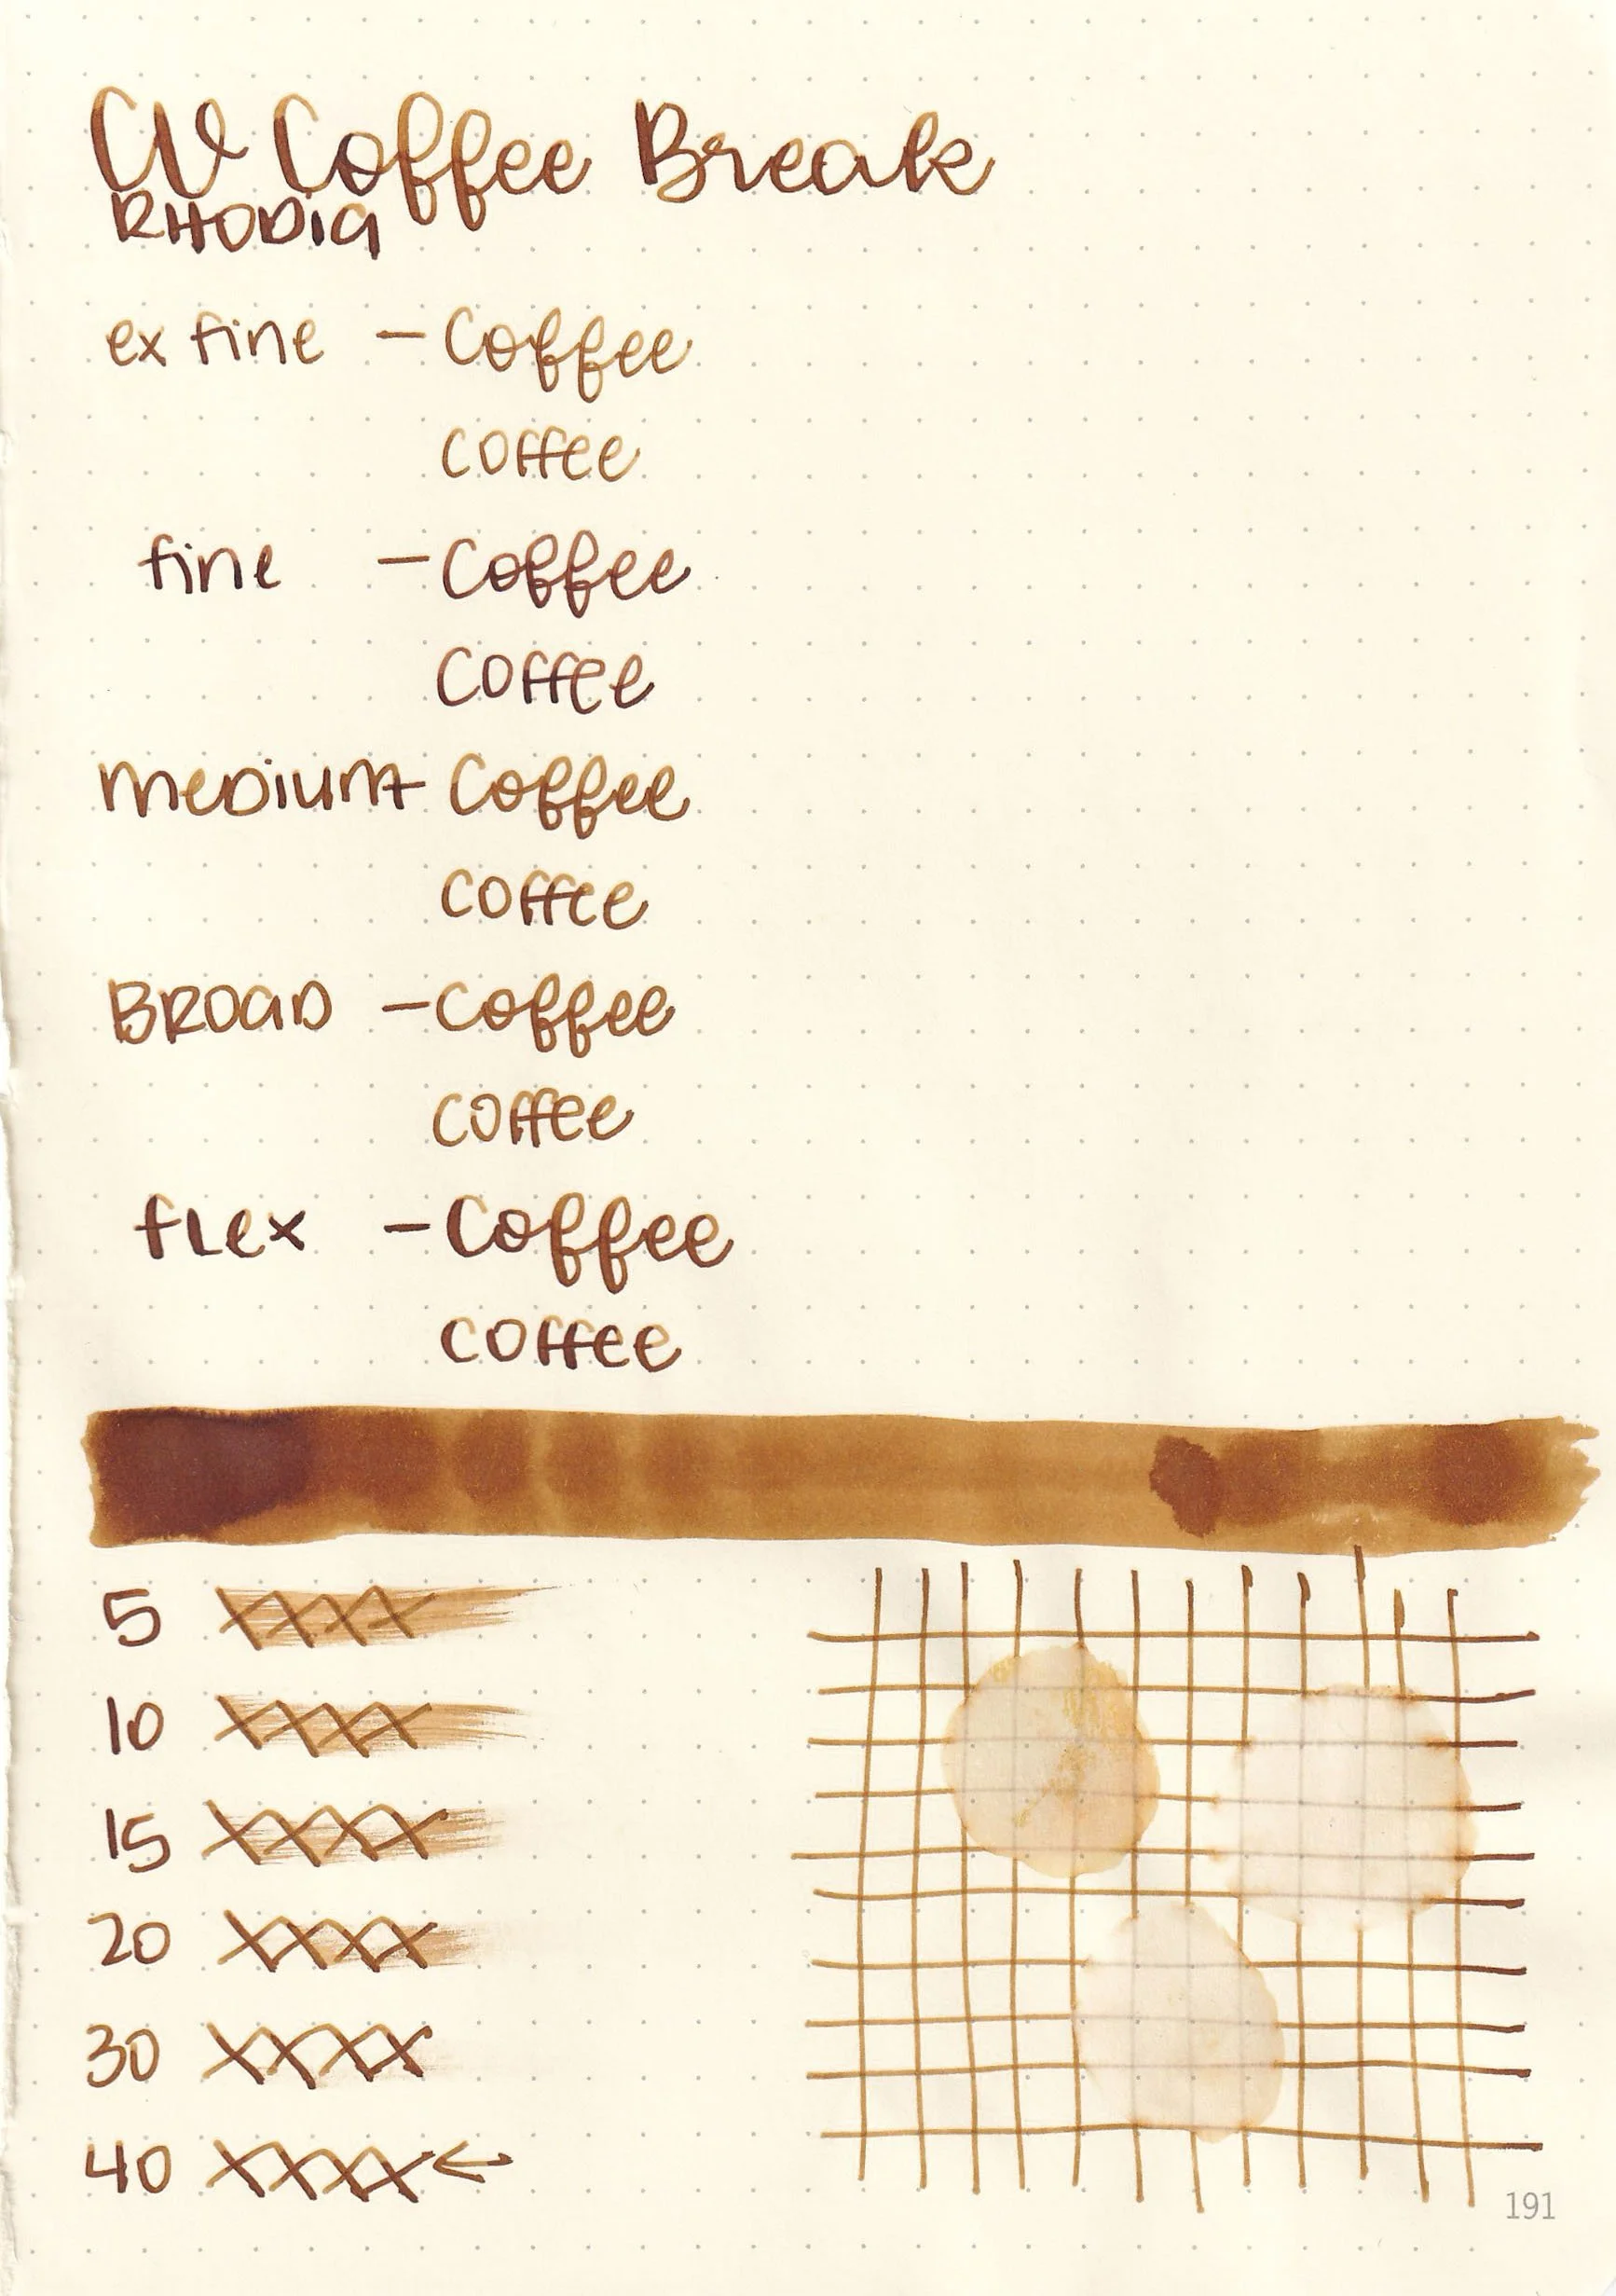 CV Coffee Break
RHODIA
ex fine - Coffee
coffee
fine - Coffee
coffee
medium - Coffee
coffee
BROAD - Coffee
coffee
flex - Coffee
coffee
5 XXXX
10 XXXX
15 XXXX
20 XXXX
30 XXXX
40 XXXX ←
191